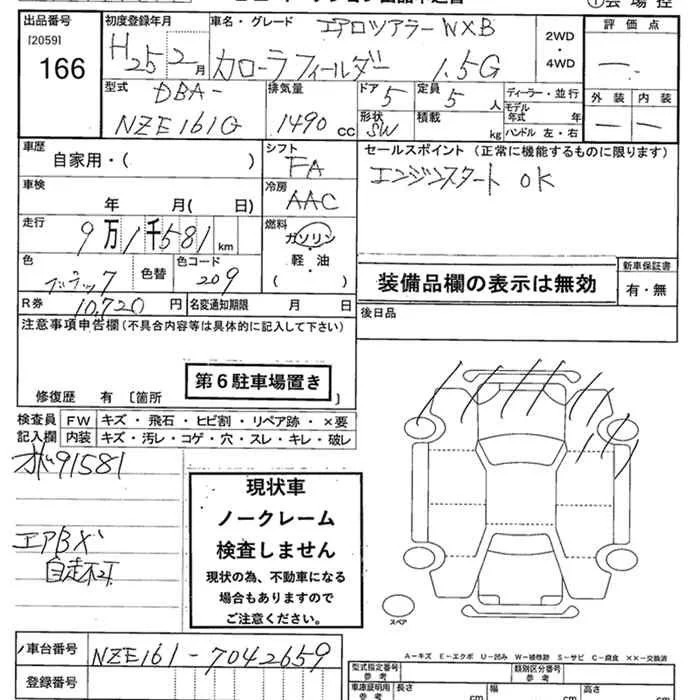 出品番号 初度登録年月 車名・グレード エアロツアラー WXB 2WD・4WD 評価点
[2059] 166 H25 2月 カローラフィールダー 1.5G 一.
型式 DBA-NZE161G 排気量 1490 cc ドア 5 定員 5人 ディーラー・並行 外装 内装
形状 SW 積載 kg モデル年式 年 ハンドル 左・右 一 一
車歴 自家用・( ) シフト FA セールスポイント (正常に機能するものに限ります)
車検 年 月( 日) 冷房 AAC エンジンスタート OK
走行 9万1千581km 燃料 ガソリン・軽油 ( )
色 ブラック 色替 色コード 209 装備品欄の表示は無効 新車保証書 有・無
R券 10,720円 名変通知期限 月 日 後日品
注意事項申告欄(不具合内容等は具体的に記入して下さい)
第6駐車場置き
修復歴 有 〔箇所 〕
検査員記入欄 FW キズ・飛石・ヒビ割・リペア跡・×要
内装 キズ・汚レ・コゲ・穴・スレ・キレ・破レ
91581
現状車
ノークレーム
検査しません
現状の為、不動車になる
場合もありますので
ご注意ください。
エアB
自走不可
スペア
A-キズ E-エクボ U-凹み W-補修跡 S-サビ C-腐食 ××-交換済
車台番号 NZE161-7042659
登録番号
型式指定番号 参考 類別区分番号 参考
車庫証明用 参考 長さ cm 幅 cm cm